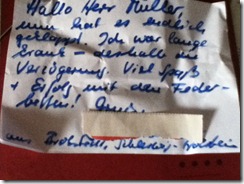 Hallo Herr Müller,
nun hat es endlich
geklappt. Ich war lange
krank – deshalb die
Verzögerung. Viel Spaß
+ Erfolg mit den Feder-
betten!
aus